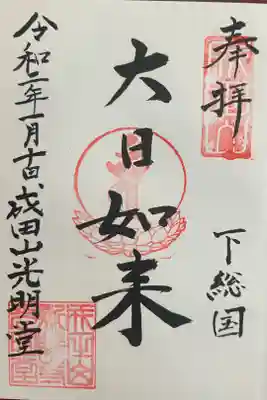 奉拝
下総国
大日如来
令和二年一月十四日 成田山光明堂